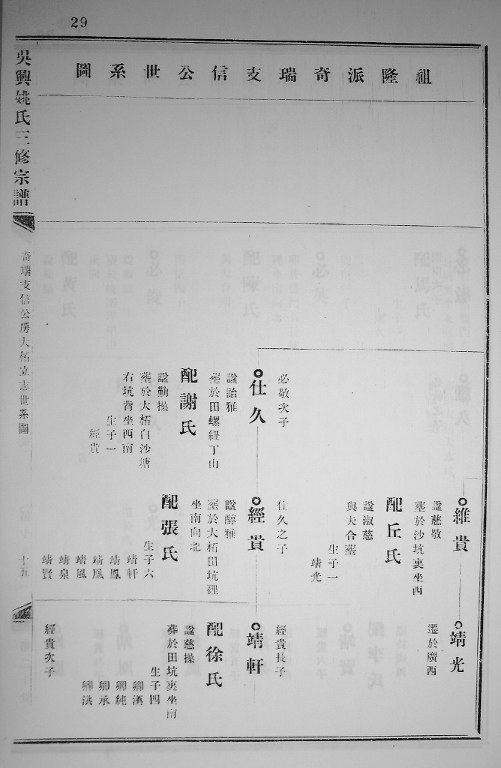 29
祖隆派奇瑞支信公世系圖
吳興姚氏三修宗譜
奇瑞支信公房大柘立志世系圖
十五
維貴
諡慈敬
葬於沙坑裏坐西
配丘氏
諡淑慈
與夫合葬
生子一
靖光
靖光
遷於廣西
必敬次子
仕久
諡諾雅
葬於田螺紐丁山
配謝氏
諡勤操
葬於大柘白沙塘
右坑背坐西南
生子一
經貴
仕久之子
經貴
諡醇雅
葬於大柘田坑裡
坐南向北
配張氏
生子六
靖軒
靖鳳
靖鳳
靖風
靖泉
靖賢
經貴長子
靖軒
配徐氏
諡慈操
葬於田坑裏坐南
生子四
卿漢
卿純
卿承
卿洪
經貴次子